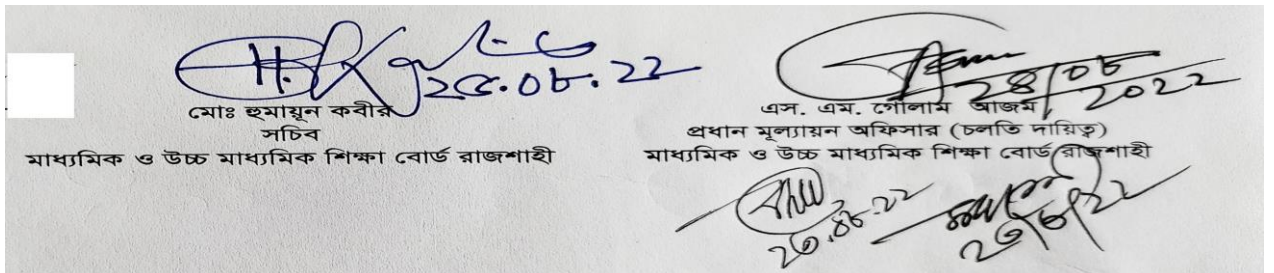 ২৫.০৮.২২
মোঃ হুমায়ূন কবীর
সচিব
মাধ্যমিক ও উচ্চ মাধ্যমিক শিক্ষা বোর্ড রাজশাহী
২৪/০৮
২০২২
এস. এম. গোলাম আজম
প্রধান মূল্যায়ন অফিসার (চলতি দায়িত্ব)
মাধ্যমিক ও উচ্চ মাধ্যমিক শিক্ষা বোর্ড রাজশাহী